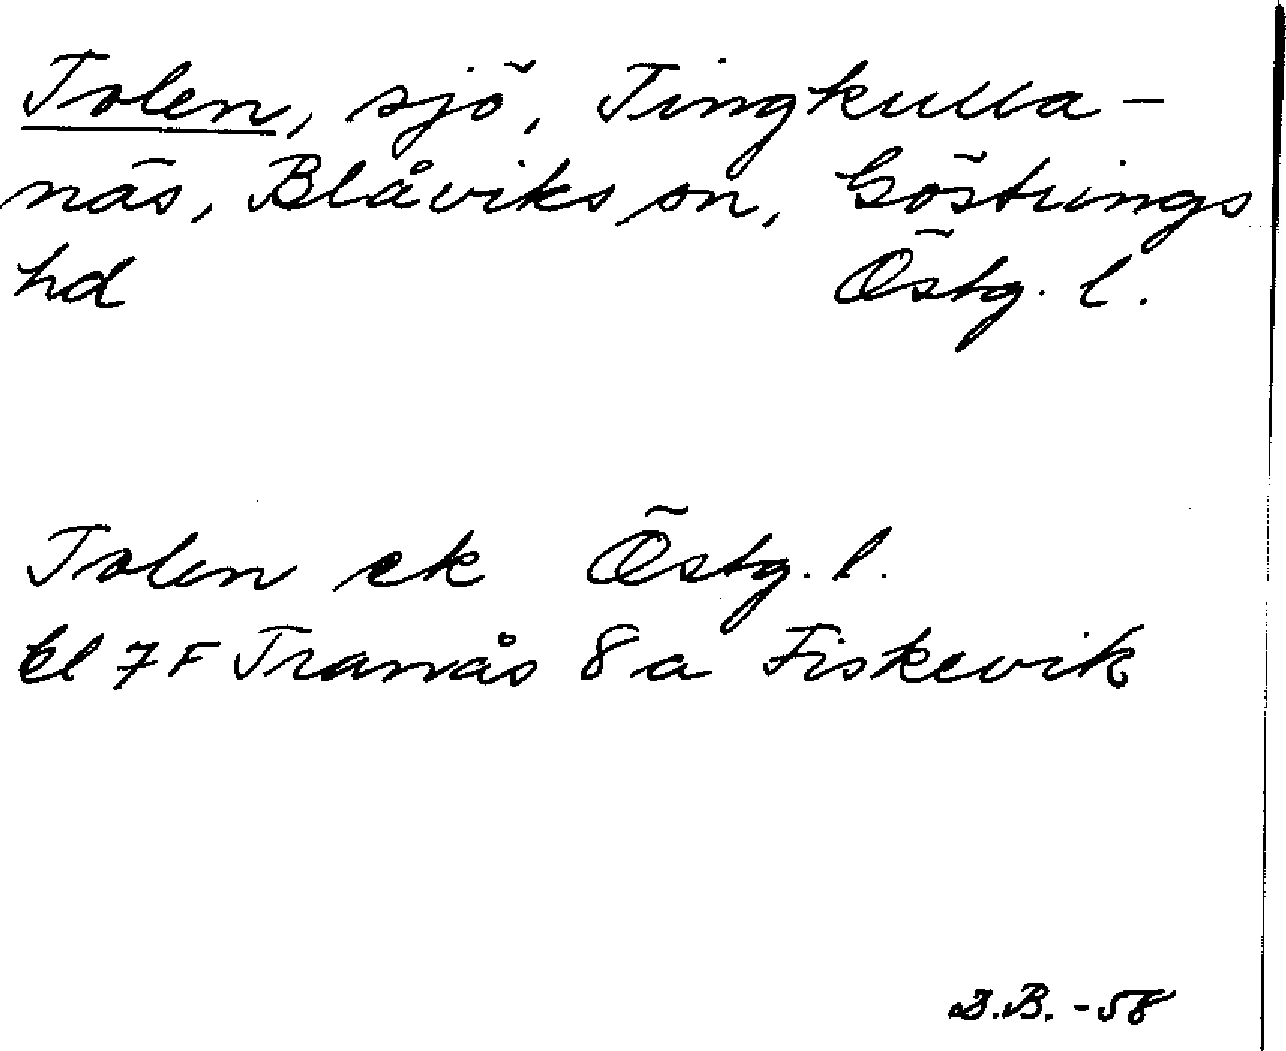 Tolen, sjö, Tingkulla-
näs, Blåviks sn, Göstrings
hd Östg. l.
Tolen ek Östg. l.
bl 7F Tranås 8a Fiskevik
B.B. -58